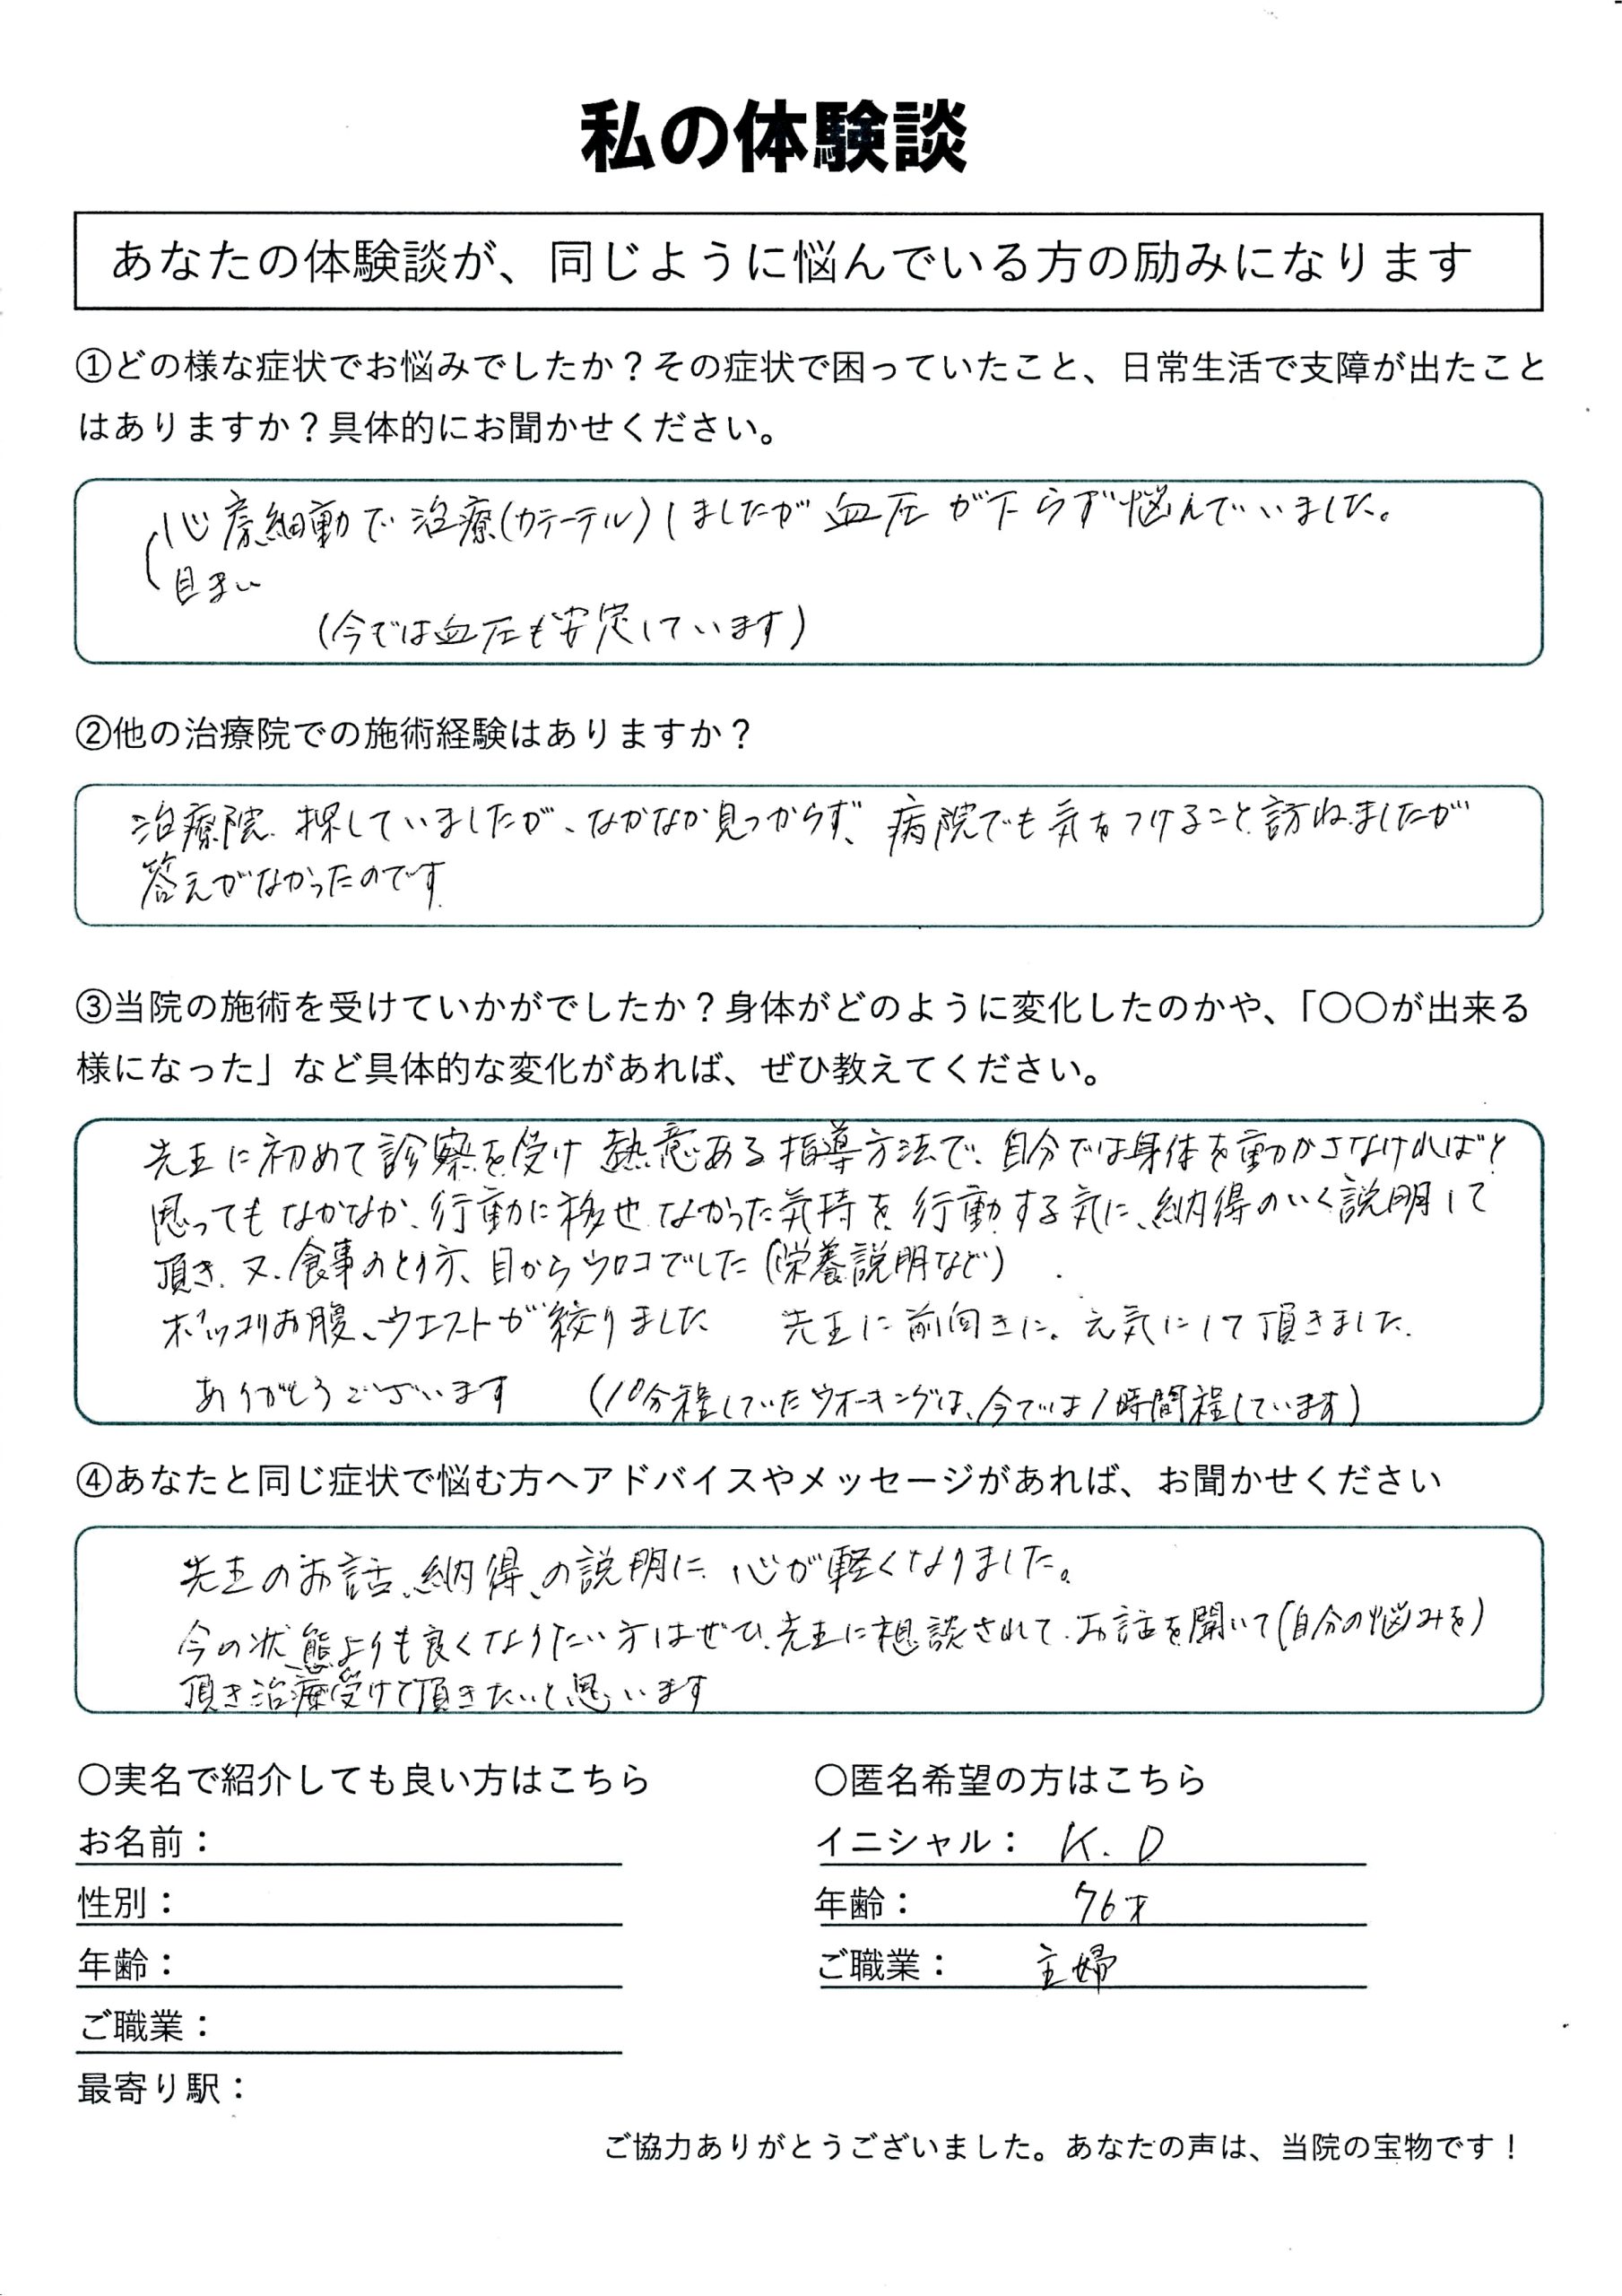 私の体験談
あなたの体験談が、同じように悩んでいる方の励みになります
①どの様な症状でお悩みでしたか？その症状で困っていたこと、日常生活で支障が出たこと
はありますか？具体的にお聞かせください。
心房細動で治療(カテーテル)しましたが血圧が下らず悩んでいました。
目まい
(今では血圧も安定しています)
②他の治療院での施術経験はありますか？
治療院.探していましたが、なかなか見つからず、病院でも気をつけること訪ねましたが
答えがなかったのです.
③当院の施術を受けていかがでしたか？身体がどのように変化したのかや、「〇〇が出来る
様になった」など具体的な変化があれば、ぜひ教えてください。
先生に初めて診察を受け 熱意ある指導方法で、自分では身体を動かさなければと
思ってもなかなか、行動に移せなかった気持を、行動する気に、納得のいく説明して
頂き、又、食事のとり方、目からウロコでした(栄養説明など)
ポッコリお腹、ウエストが絞りました 先生に前向きに。元気にして頂きました.
ありがとうございます (10分程していたウオーキングは、今では1時間程しています)
④あなたと同じ症状で悩む方へアドバイスやメッセージがあれば、お聞かせください
先生のお話、納得、の説明に 心が軽くなりました。
今の状態よりも良くなりたい方はぜひ、先生に相談されて、お話を聞いて(自分の悩みを)
頂き治療受けて頂きたいと思います
〇実名で紹介しても良い方はこちら
お名前：
性別：
年齢：
ご職業：
最寄り駅：
〇匿名希望の方はこちら
イニシャル： K.D
年齢： 76才
ご職業： 主婦
ご協力ありがとうございました。あなたの声は、当院の宝物です！